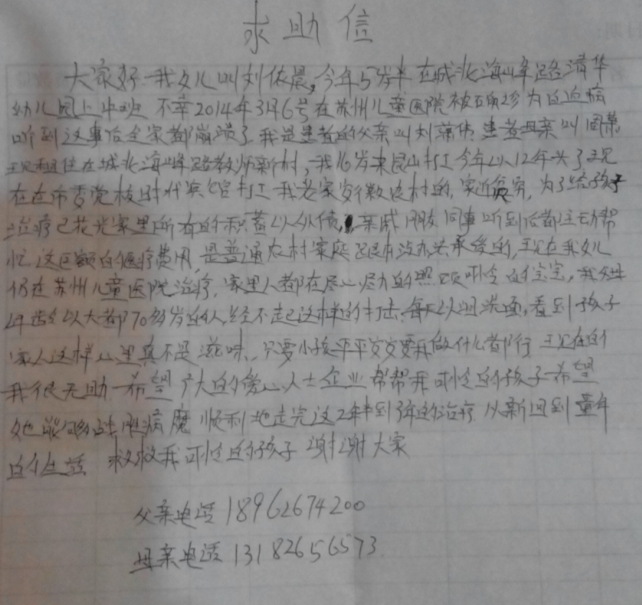 求助信
大家好 我女儿叫刘依晨,今年5岁半 在城北海峰路清华
幼儿园上中班 不幸2014年3月6号在苏州儿童医院被确诊为白血病
听到这事后全家都崩溃了 我是患者的父亲叫刘 患者母亲叫周
现租住在城北海峰路教师新村,我16岁来昆山打工今年以12年头了现
在在市委党校时代 打工 我老家安徽农村的,家近贫穷,为了给孩子
治疗已花光家里所有的积蓄以外债,亲戚 朋友 同事 听到后都 帮
忙 这巨额的医疗费用,是普通农村家庭 没办法承受的,现在我女儿
仍在苏州儿童医院治疗,家里人都在尽心尽力的照顾可怜的宝宝,我父母
年龄以大都70多岁的人,经不起这样的打击,每天以泪洗面,看到孩子
家人这样心里真不是滋味,只要小孩平平安安要我做什么都行 现在的
我很无助 希望广大的爱心人士企业帮帮我可怜的孩子 希望
她能够战胜病魔 顺利地走完这2年半到3年的治疗 从新回到童年
的生活 救救我可怜的孩子 谢谢大家
父亲电话 18962674200
母亲电话 13182656573